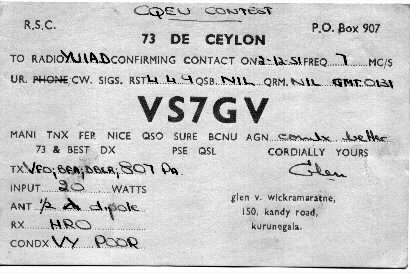 CQEU CONTEST
R.S.C. P.O. Box 907
73 DE CEYLON
TO RADIO YU1AD CONFIRMING CONTACT ON 2-12-51 FREQ 7 MC/S
UR. PHONE CW. SIGS. RST 449 QSB. NIL QRM. NIL GMT. 0131
VS7GV
MANI TNX FER NICE QSO SURE BCNU AGN condx better
73 & BEST DX PSE QSL CORDIALLY YOURS
TX VFO; BFR; DBLR; 807 PA. Glen
INPUT 30 WATTS
ANT 1/2 λ dipole
RX HRO
CONDX VY POOR
glen v. wickramaratne,
150, kandy road,
kurunegala.